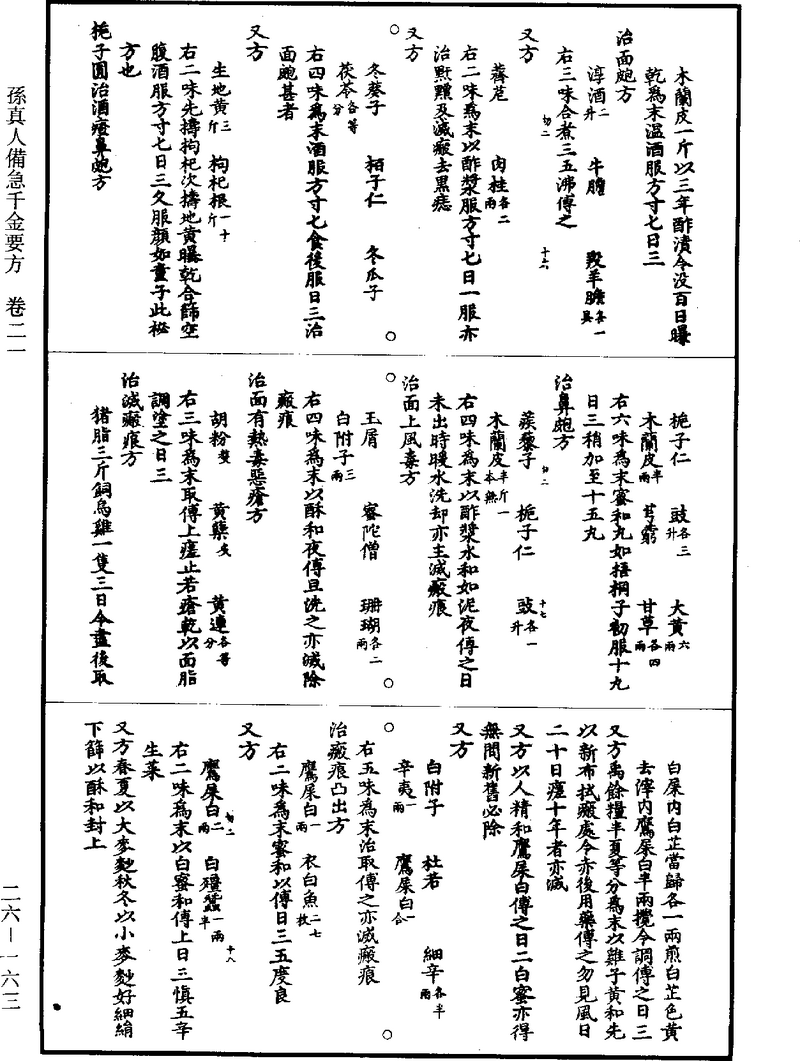 孫真人備急千金要方　卷二一
木蘭皮一斤以三年酢漬令没百日曝
乾為末温酒服方寸匕日三
治面皰方
淳酒二升　牛膽　羖羊膽各一具
右三味合煮三五沸傅之
又方
薺苨　肉桂各二兩
右二味為末以酢漿服方寸匕日一服亦
治䵟䵳及滅瘢去黑痣
又方
冬葵子　栢子仁　冬瓜子
茯苓各等分
右四味為末酒服方寸匕食後服日三治
面皰甚者
又方
生地黄三斤　枸杞根一十斤
右二味先擣枸杞次擣地黄曝乾合篩空
腹酒服方寸匕日三久服顔如童子此祕
方也
梔子圓治酒瘡鼻皰方
梔子仁　豉各三升　大黄六兩
木蘭皮半兩　芎藭　甘草各四兩
右六味為末蜜和丸如梧桐子初服十丸
日三稍加至十五丸
治鼻皰方
蒺藜子　梔子仁　豉各一升
木蘭皮半斤一本無
右四味為末以酢漿水和如泥夜傅之日
未出時暖水洗却亦主滅瘢痕
治面上風毒方
玉屑　密陀僧　珊瑚各二兩
白附子三兩
右四味為末以酥和夜傅旦洗之亦滅除
瘢痕
治面有熱毒惡瘡方
胡粉　黄蘗炙　黄連各等分
右三味為末取傅上瘥止若瘡乾以面脂
調塗之日三
治滅瘢痕方
猪脂三斤飼烏雞一隻三日令盡後取
白屎内白芷當歸各一兩煎白芷色黄
去滓内鷹屎白半兩攪令調傅之日三
又方禹餘糧半夏等分為末以雞子黄和先
以新布拭瘢處令赤後用藥傅之勿見風日
二十日瘥十年者亦滅
又方以人精和鷹屎白傅之日二白蜜亦得
無問新舊必除
又方
白附子　杜若　細辛各半兩
辛夷一兩　鷹屎白一合
右五味為末治取傅之亦滅瘢痕
治瘢痕凸出方
鷹屎白一兩　衣白魚二七枚
右二味為末蜜和以傅日三五度良
又方
鷹屎白二兩　白殭蠶一兩半
右二味為末以白蜜和傅上日三慎五辛
生菜
又方春夏以大麥麨秋冬以小麥麨好細絹
下篩以酥和封上
二六—一六三